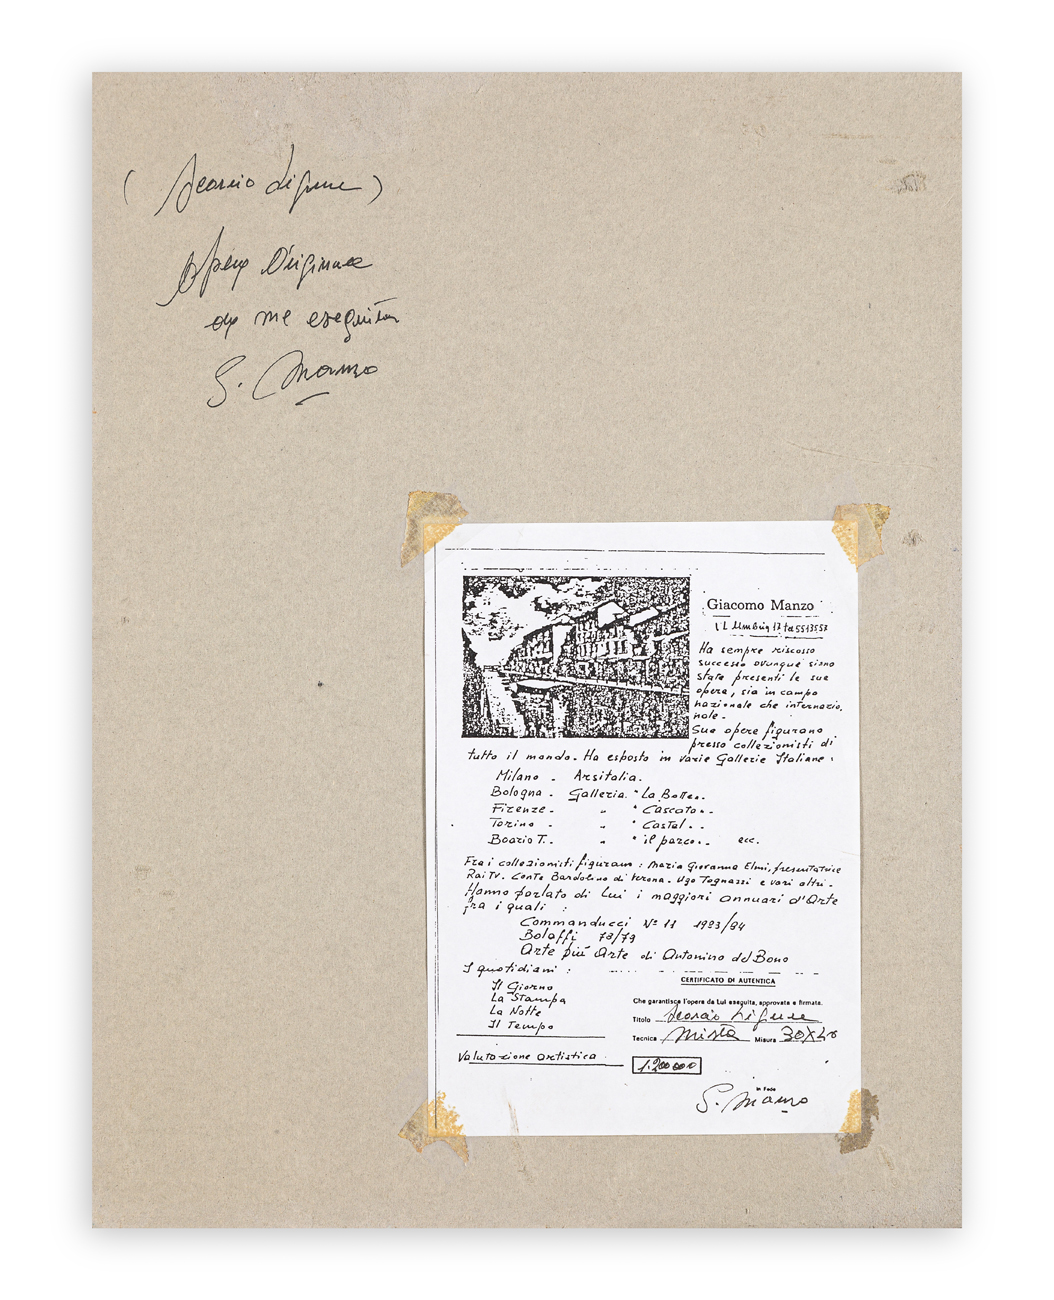 (Scorcio Ligure)
Opera Originale
da me eseguita
G. Manzo
Giacomo Manzo
Ha sempre riscosso
successo ovunque siano
state presenti le sue
opere, sia in campo
nazionale che internazio.
nale.
Sue opere figurano
presso collezionisti di
tutto il mondo. Ha esposto in varie Gallerie Italiane:
Milano - Arsitalia.
Bologna - Galleria "La Bottea"
Firenze - " " Cascata".
Torino - " " Castel".
Boario T. - " " il parco". ecc.
Fra i collezionisti figurano: Maria Giovanna Elmi, presentatrice
Rai Tv. Conte Bardolino di Verona. Ugo Tognazzi e vari altri.
Hanno parlato di Lui i maggiori annuari d'Arte
fra i quali:
Commanducci N° 11 1983/84
Bolaffi 78/79
Arte più Arte di Antonino del Bono
I quotidiani:
Il Giorno
La Stampa
La Notte
Il Tempo
Valutazione artistica
CERTIFICATO DI AUTENTICA
Che garantisce l'opera da Lui eseguita, approvata e firmata.
Titolo Scorcio Ligure
Tecnica Mista Misura 30x40
1.200000
in Fede
G. Manzo